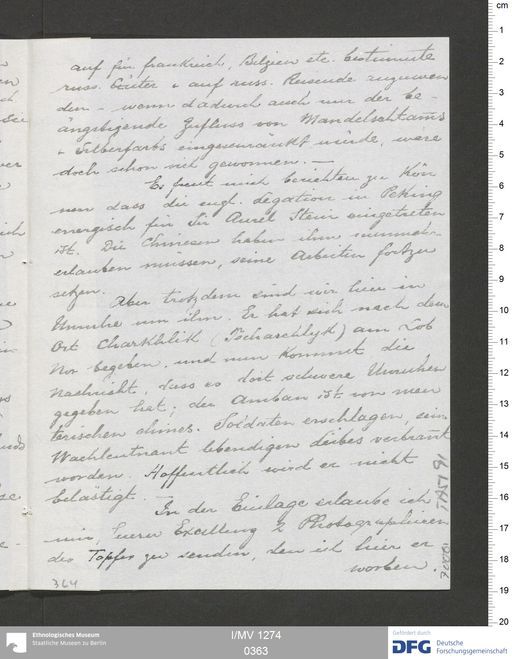 auf für Frankreich, Belgien etc. bestimmte
russ. Güter & auf russ. Reisende anzuwen
den – wenn dadurch auch nur der be-
ängstigende Zufluss von Mandelschtams
& Silberfarbs eingeschränkt würde, wäre
doch schon viel gewonnen. —
Es freut mich berichten zu kön
nen dass die engl. Legation in Peking
energisch für Sir Aurel Stein eingetreten
ist. Die Chinesen haben ihm nunmehr
erlauben müssen, seine Arbeiten fortzu
setzen.
Aber trotzdem sind wir hier in
Unruhe um ihn. Er hat sich nach dem
Ort Charkhlik (Tscharchlyk) am Lob
Nor begeben, und nun kommt die
Nachricht, dass es dort schwere Unruhen
gegeben hat; der Amban ist von meu
terischen chines. Soldaten erschlagen, sein
Wachleutnant lebendigen Leibes verbrannt
worden. Hoffentlich wird er nicht
belästigt. —
In der Einlage erlaube ich
mir, Euerer Excellenz 2 Photographieen
des Topfes zu senden, den ich hier er
worben.
364
cm
1
2
3
4
5
6
7
8
9
10
11
12
13
14
15
16
17
18
19
20
Ethnologisches Museum
Staatliche Museen zu Berlin
I/MV 1274
0363
Gefördert durch
DFG
Deutsche
Forschungsgemeinschaft